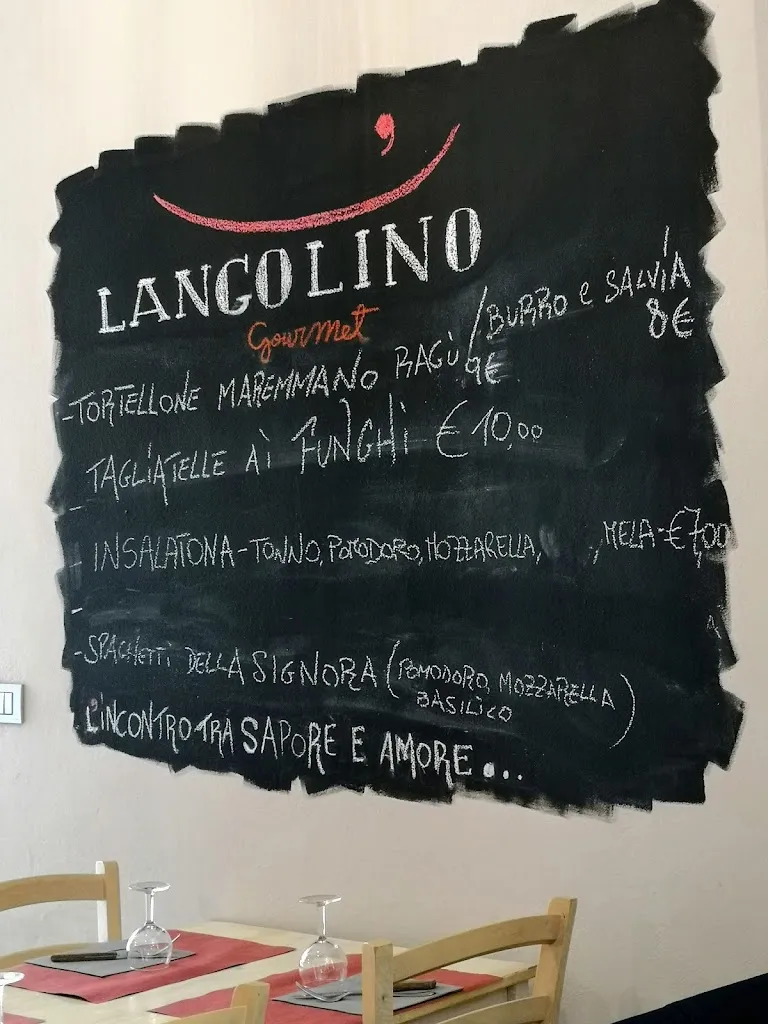 ,
LANGOLINO
Gourmet
-TORTELLONE MAREMMANO RAGÙ/BURRO e SALVIA
9€ 8€
- TAGLIATELLE AI FUNGHI € 10,00
- INSALATONA-TONNO, POMODORO, MOZZARELLA, , MELA-€7,00
-
-SPAGHETTI DELLA SIGNORA (POMODORO, MOZZARELLA
BASILICO)
L'INCONTRO TRA SAPORE E AMORE...